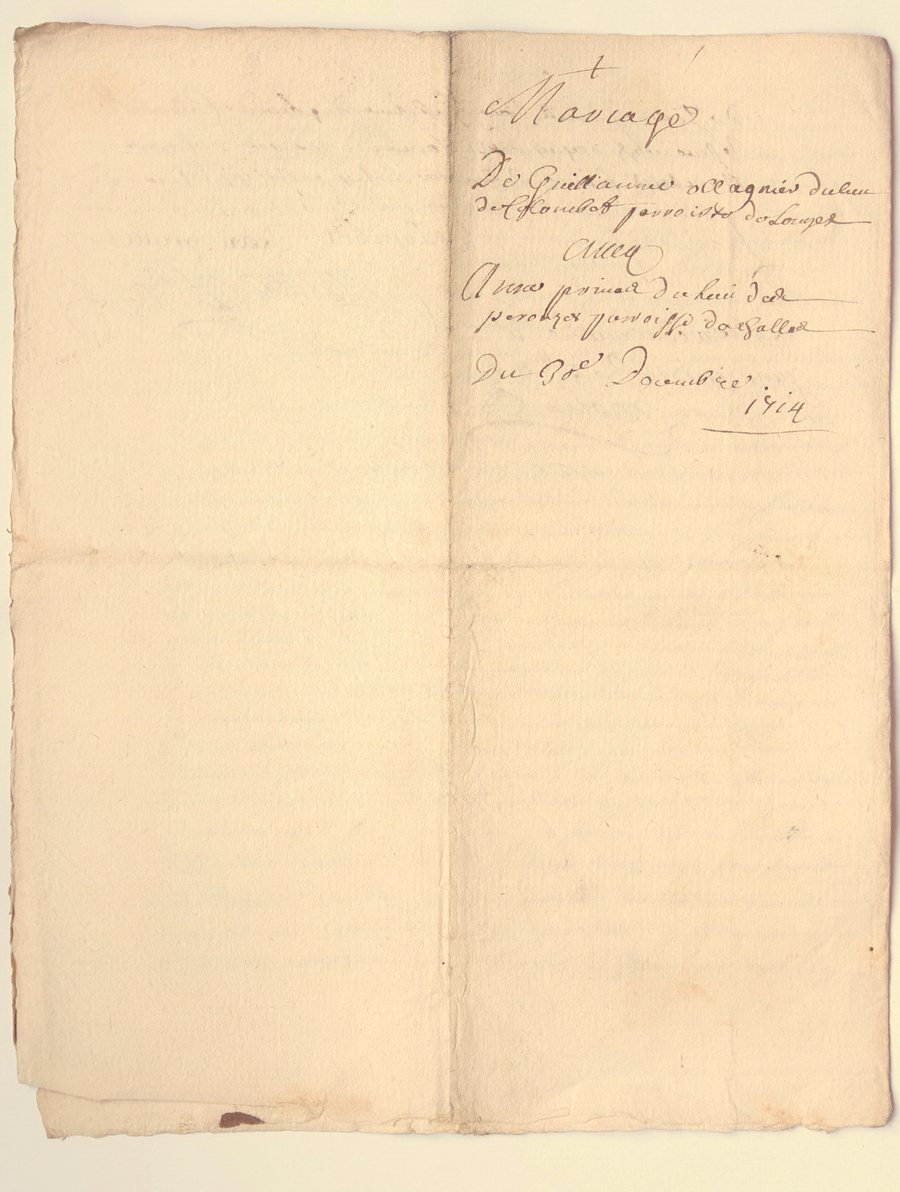 Mariage
De Guillaume ollagnier du lieu
de Colombet parroisse de
Avecq
Anne du lieu de
parroisse de
Du 30e Decembre
1714